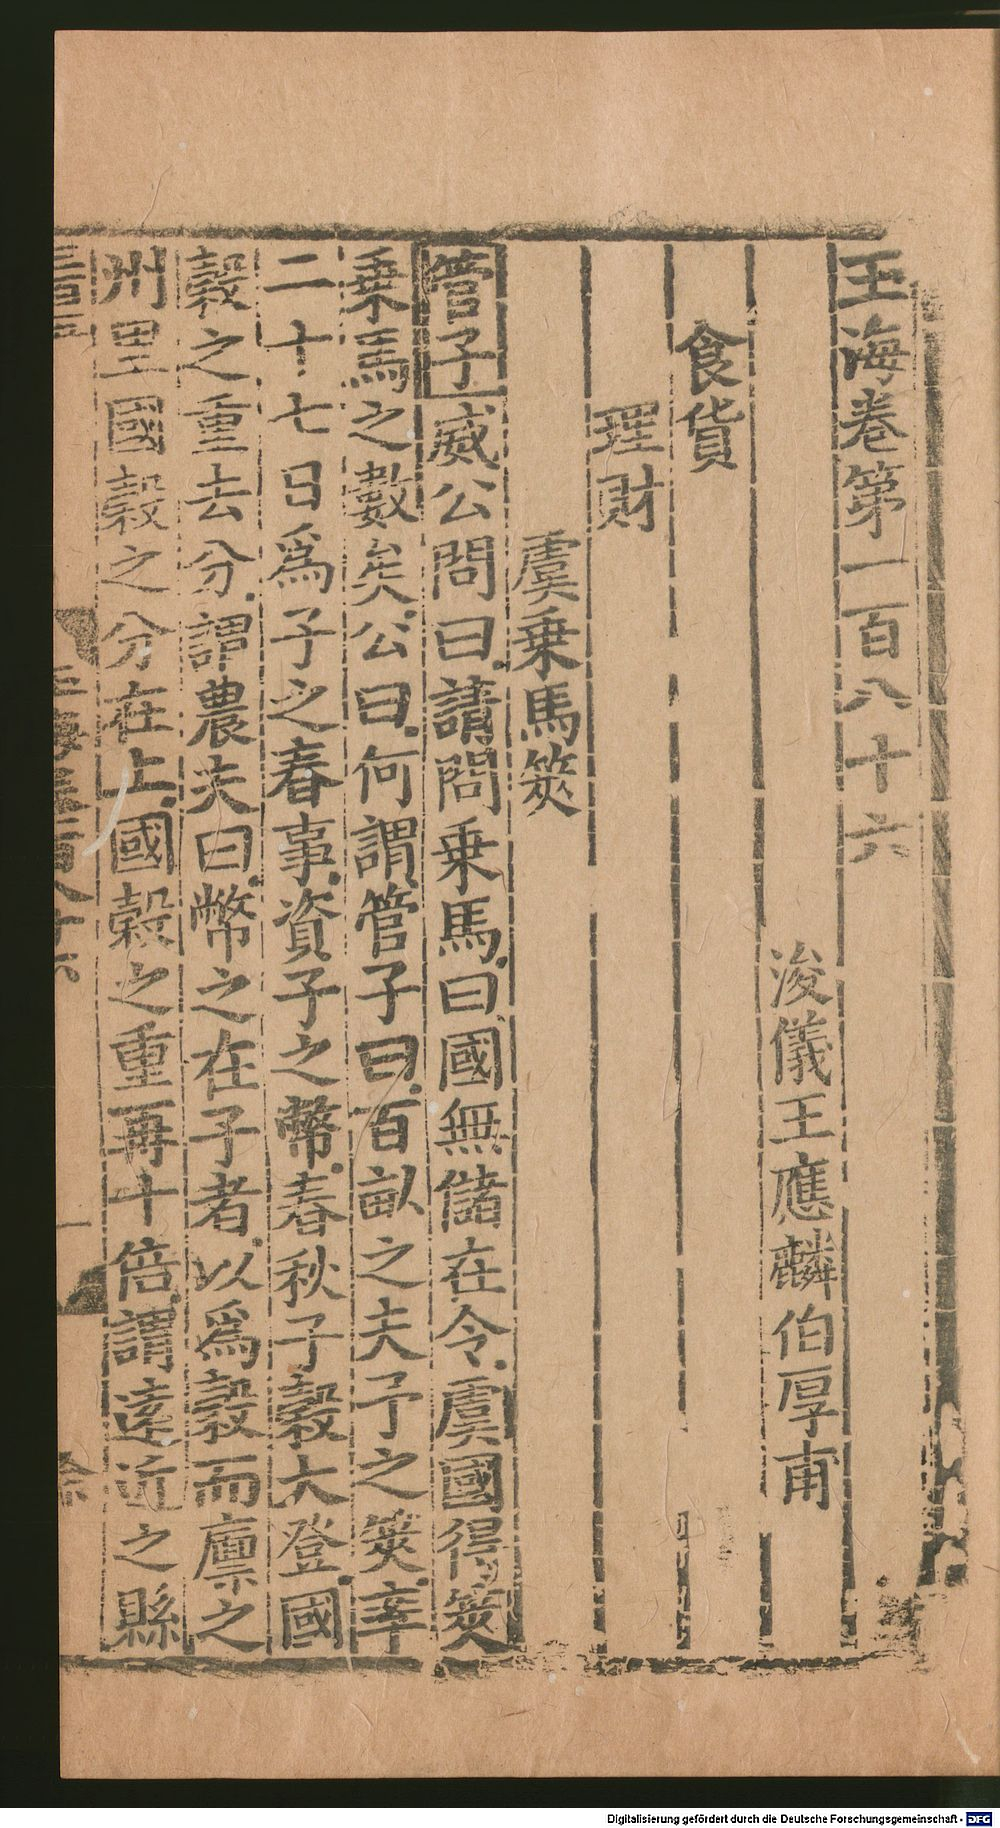 玉海卷第一百八十六
浚儀王應麟伯厚甫
食貨
理財
虞乗馬筴
管子威公問曰請問乗馬曰國無儲在令虞國得筴
乗馬之數矣公曰何謂管子曰百畝之夫予之筴率
二十七日爲子之春事資子之幣春秋子穀大登國
穀之重去分謂農夫曰幣之在子者以爲穀而廪之
州里國穀之分在上國穀之重再十倍謂逺近之縣
Digitalisierung gefördert durch die Deutsche Forschungsgemeinschaft - DFG